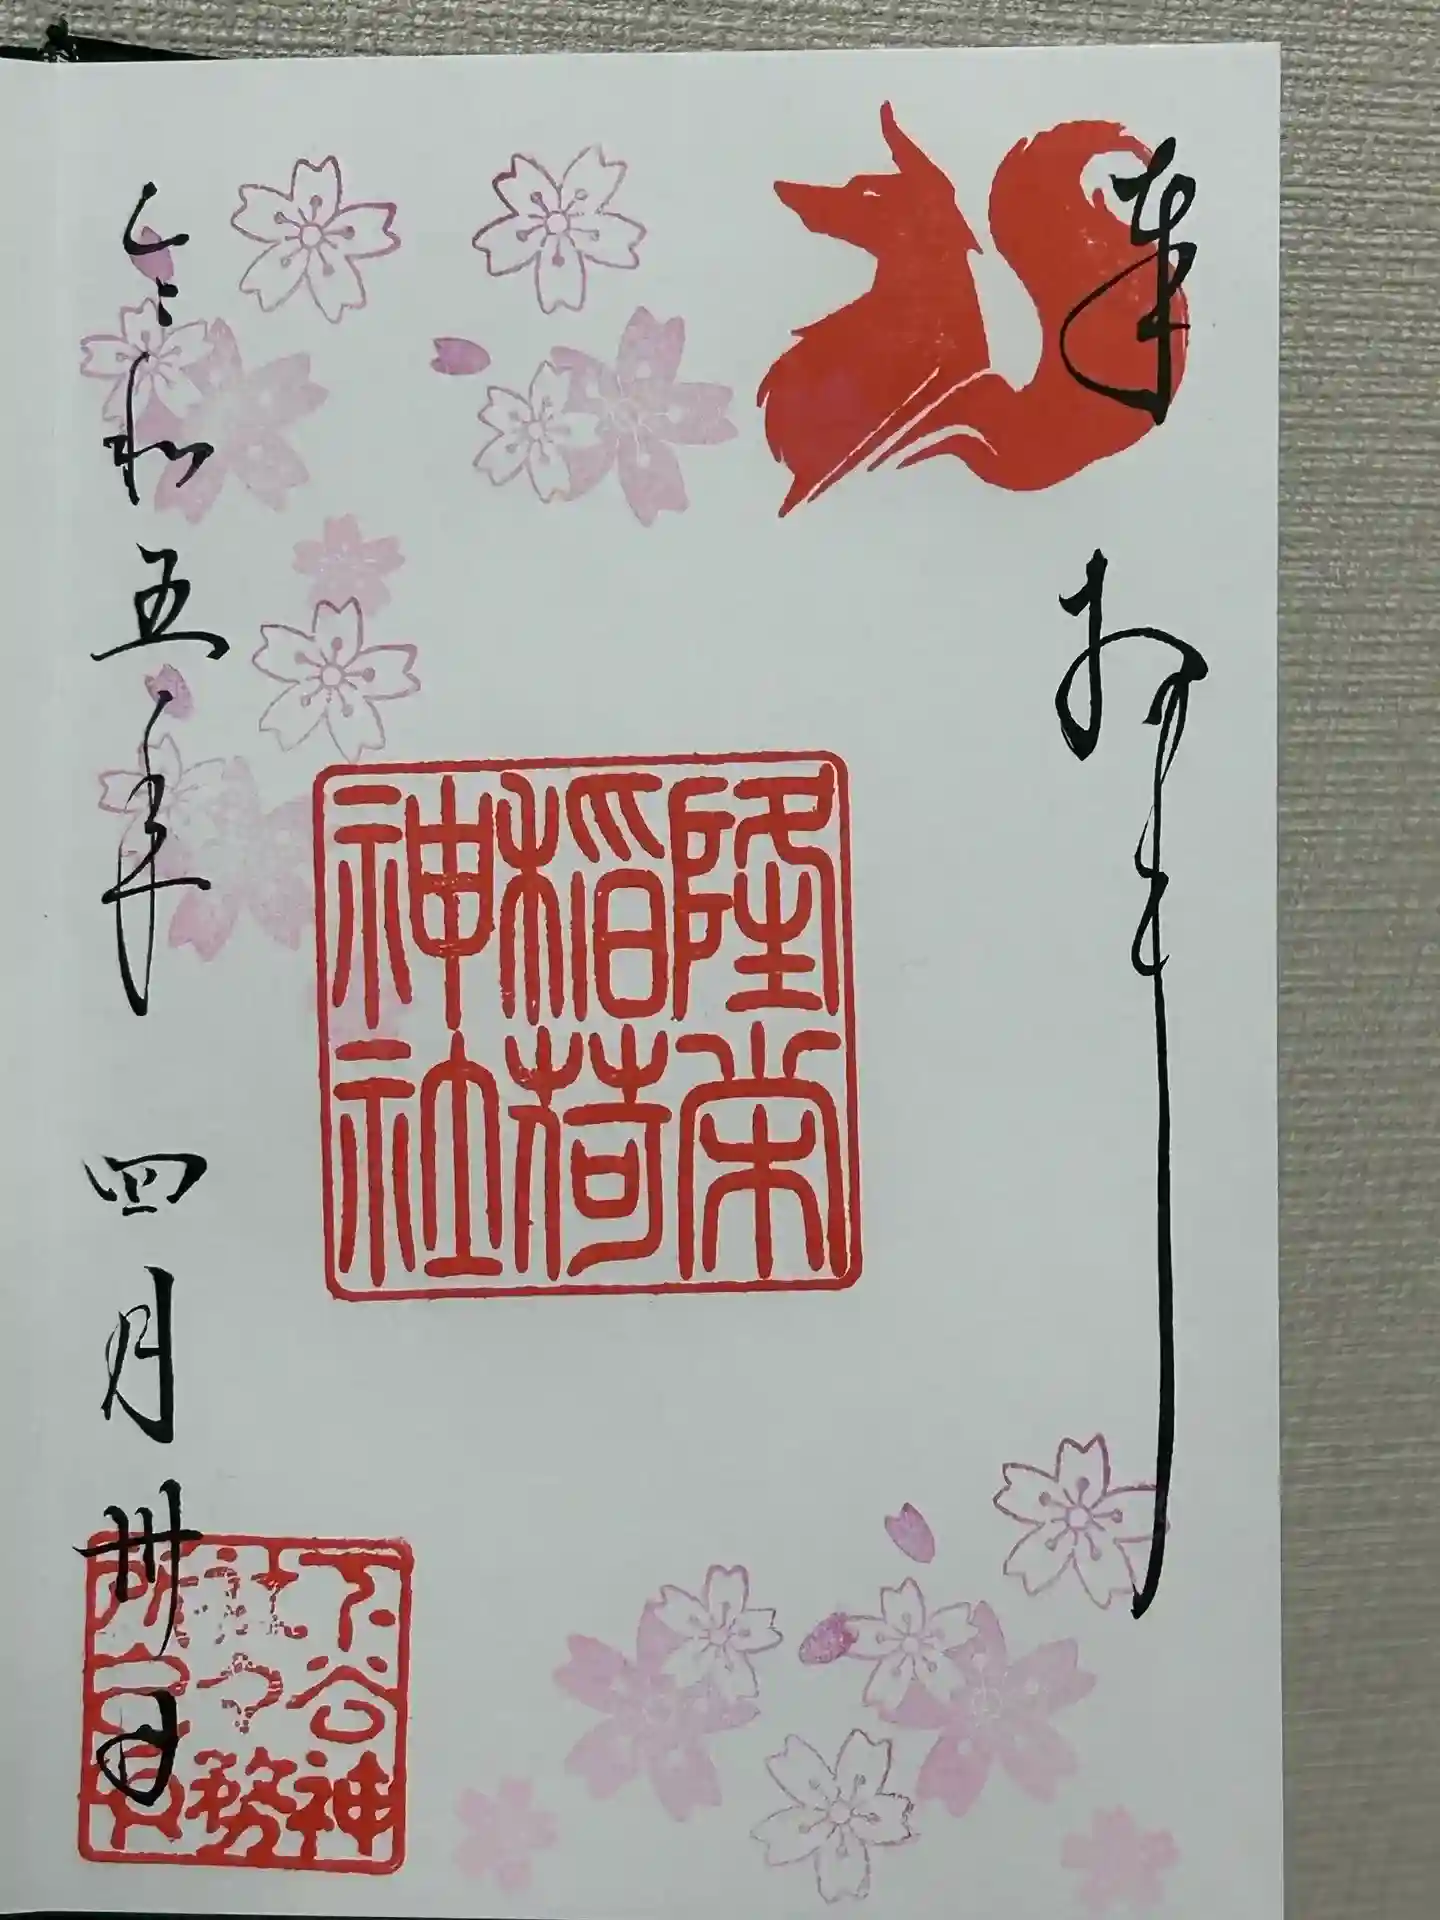 奉拝
隆栄
稲荷
神社
令和五年 四月卅日
下谷神
社々務
所之印